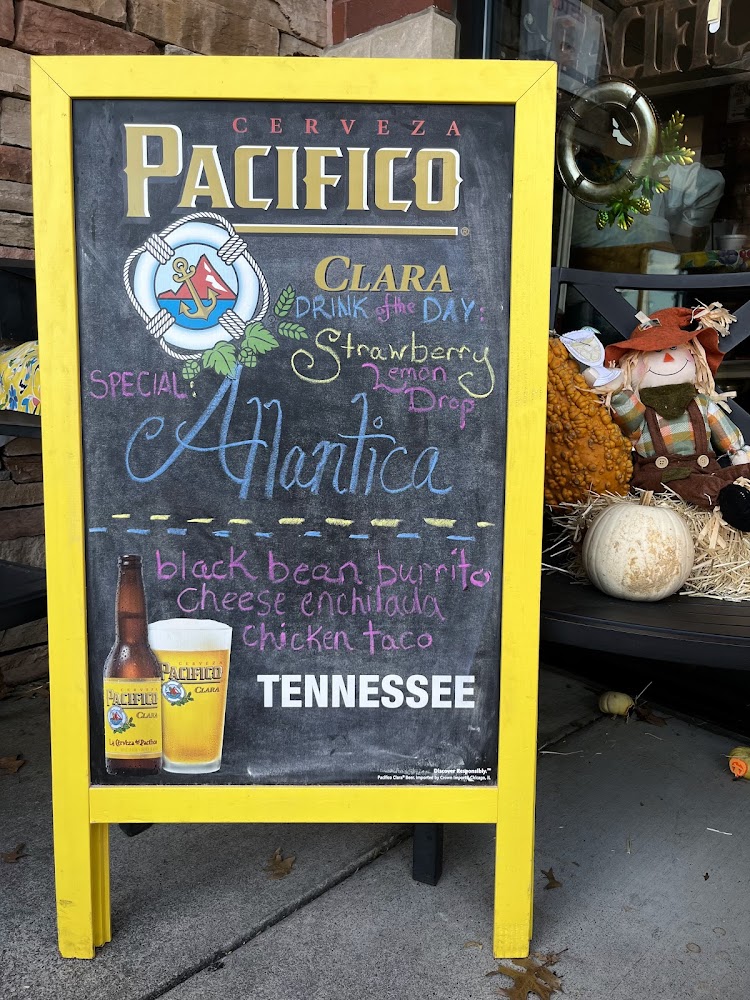 CERVEZA
PACIFICO®
CLARA
DRINK of the DAY:
Strawberry
Lemon
Drop
SPECIAL:
Atlantica
black bean burrito
cheese enchilada
chicken taco
TENNESSEE
PACIFICO
CLARA
La Cerveza del Pacífico
CERVEZA
PACIFICO
CLARA
Discover Responsibly.™
Pacifico Clara® Beer. Imported by Crown Imports, Chicago, IL